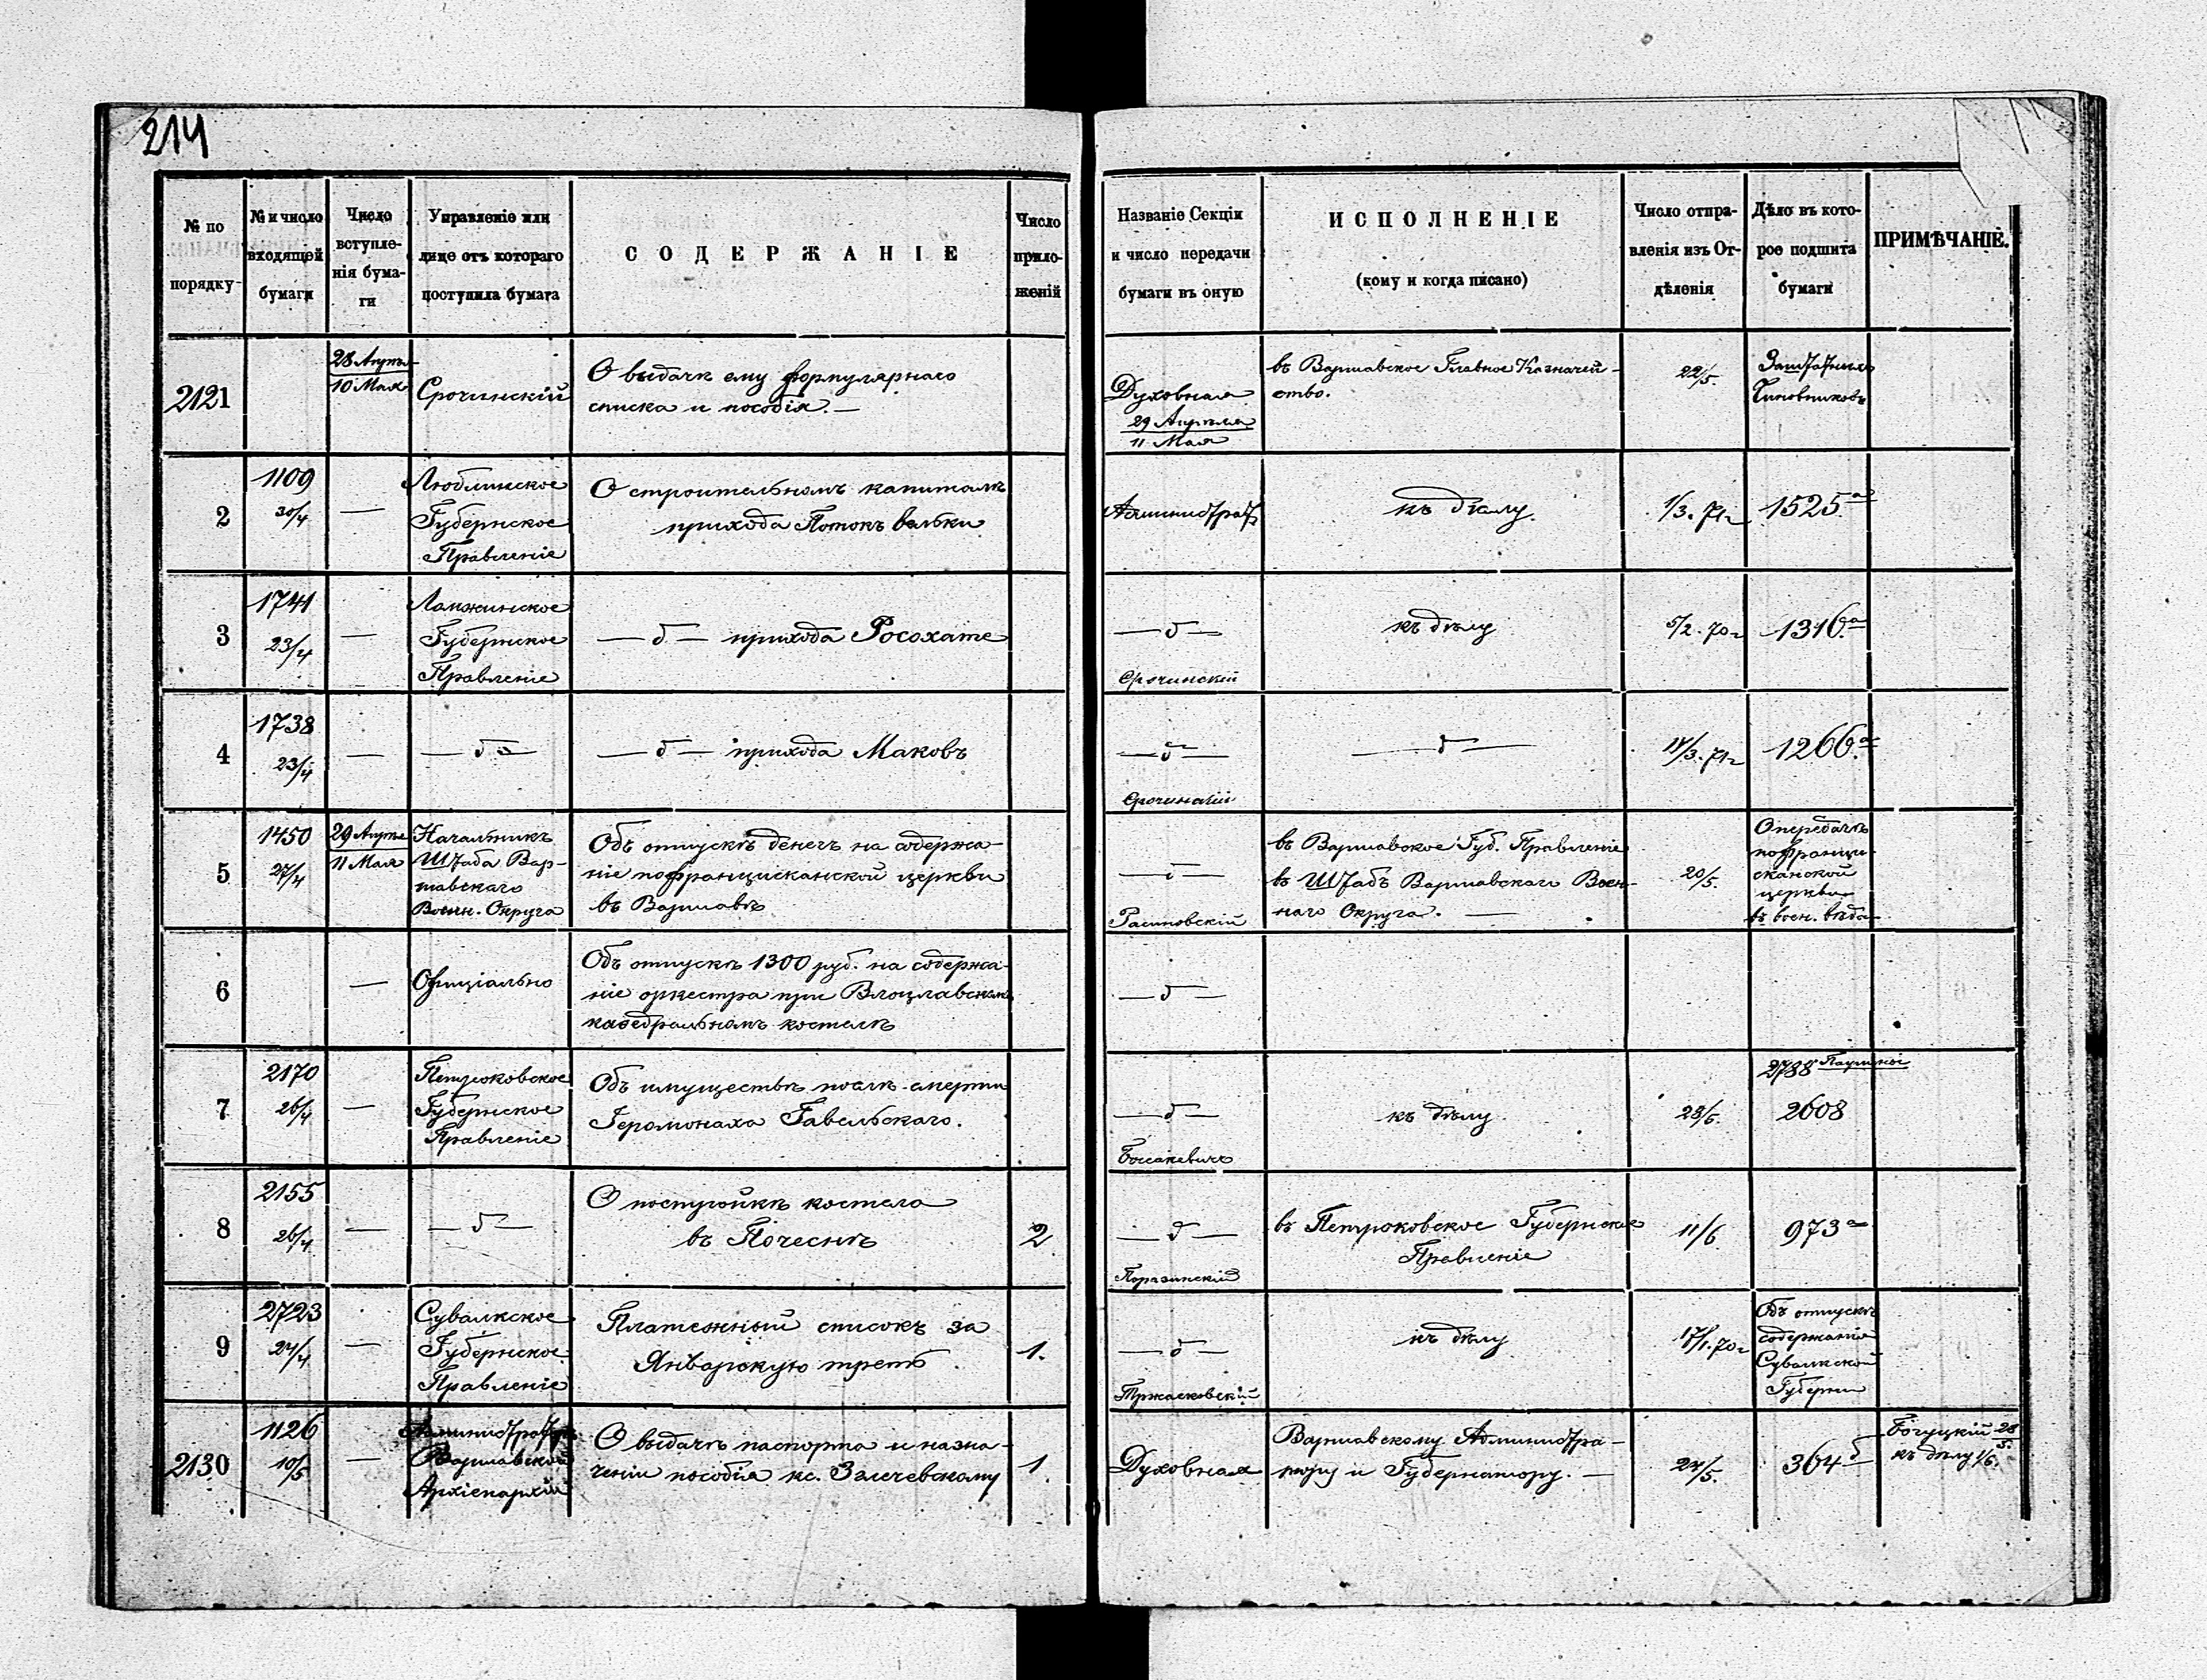 214
№ по порядку
№ и число входящей бумаги
Число вступле-
нія бума-
ги
Управленіе или
лице отъ котораго
поступила бумага
СОДЕРЖАНІЕ
Число
прило-
женій
Названіе Секціи
и число передачи
бумаги въ оную
ИСПОЛНЕНІЕ
(кому и когда писано)
Число отпра-
вленія изъ От-
дѣленія
Дѣло въ кото-
рое подшита
бумага
ПРИМѢЧАНІЕ.
2121
28 Апрѣл
10 Мая
Срочинскій
О выдачѣ ему формулярнаго
списка и пособія. —
Духовная
29 Апрѣля
11 Мая
въ Варшавское Главное Казначей-
ство.
22/5.
Заштатныхъ
Чиновниковъ
2
1109
30/4
—
Люблинское
Губернское
Правленіе
О строительномъ капиталѣ
прихода Потокъ вельки
Администрат
къ дѣлу.
1/3. 71 г
1525 а
3
1741
23/4
—
Ломжинское
Губернское
Правленіе
— д — прихода Росохате
— д —
Срочинскій
къ дѣлу
5/2. 70 г
1316 а
4
1738
23/4
—
— д —
— д — прихода Маковъ
— д —
Срочинскій
— д —
17/3. 71 г
1266 а
5
1450
27/4
29 Апрѣл
11 Мая
Начальникъ
Штаба Вар-
шавскаго
Воен. Округа
Объ отпускѣ денегъ на содержа-
ніе пофранцисканской церкви
въ Варшавѣ
— д —
Расиновскій
въ Варшавское Губ. Правленіе
въ Штабъ Варшавскаго Воен-
наго Округа. —
20/5.
О передачѣ
пофранци-
сканской
церкви
въ воен. вѣдо-
6
—
Официально
Объ отпускѣ 1300 руб. на содержа-
ніе оркестра при Влоцлавскомъ
каѳедральномъ костелѣ
— д —
7
2170
26/4
—
Петроковское
Губернское
Правленіе
Объ имуществѣ послѣ смерти
Іеромонаха Гавельскаго.
— д —
къ дѣлу
28/5.
2788
2608
8
2155
26/4
—
— д —
О постройкѣ костела
въ Почеснѣ
2
— д —
Поразинскій
въ Петроковское Губернское
Правленіе
11/6
973 а
9
2723
24/4
—
Сувалкское
Губернское
Правленіе
Платежный списокъ за
Январскую треть
1.
— д —
Тржасковскій
къ дѣлу
17/1. 70 г
Объ отпускѣ
содержанія
Сувалкской
Губерни
2130
1126
10/5
—
Администраторъ
Варшавской
Архіепархіи
О выдачѣ паспорта и назна-
ченіи пособія кс. Злечевскому
1.
Духовная
Варшавскому Администра-
тору и Губернатору. —
24/5.
364 б
Богуцкій 28/5.
къ дѣлу 1/6.